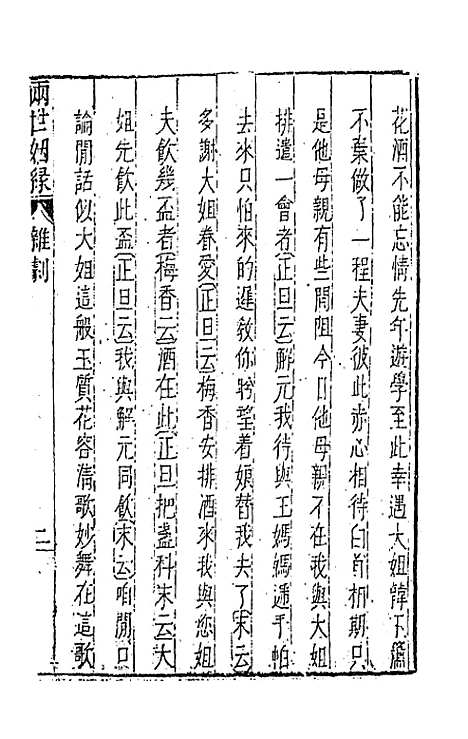 花酒不能忘情先年遊學至此幸遇大姐韓玉簫
不棄做了一程夫妻彼此赤心相待白首相期只
是他母親有些間阻今日他母親不在我與大姐
排遣一會者(正旦云)解元我待與王媽媽遞手帕
去來只怕來的遲敎你盻望着娘替我去了(末云)
多謝大姐眷愛(正旦云)梅香安排酒來我與您姐
夫飲幾盃者(梅香云)酒在此(正旦把盞科末云)大
姐先飲此盃(正旦云)我與解元同飲(末云)咱閒只
論閒話似大姐這般玉質花容清歌妙舞在這歌
兩世姻緣 雜劇 二